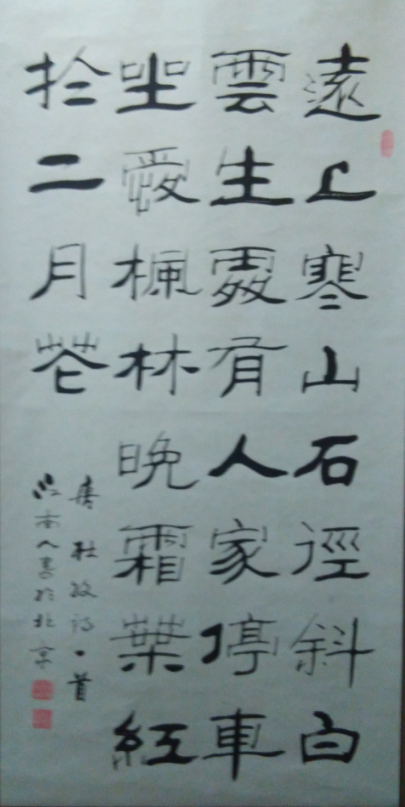 遠上寒山石徑斜白
雲生處有人家停車
坐愛楓林晚霜葉紅
於二月花
唐杜牧詩一首
江南人書於北京